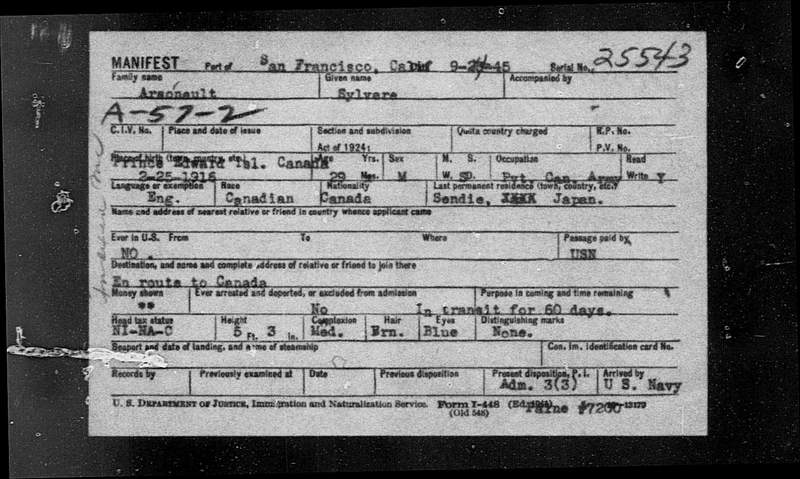 MANIFEST Port of San Francisco, Calif 9-24-45 Serial No. 25543
Family name Given name Accompanied by
Arsonault Sylvere
A-57-2
C.I.V. No. Place and date of issue Section and subdivision Quota country charged R.P. No.
Act of 1924: P.V. No.
Place of birth (town, country, etc.) Age Yrs. Sex M. S. Occupation Read
Prince Edward Isl. Canada
2-25-1916 29 Mos. M W. D. Pvt. Can. Army Write Y
Language or exemption Race Nationality Last permanent residence (town, country, etc.)
Eng. Canadian Canada Sendie, Japan.
Name and address of nearest relative or friend in country whence applicant came
Ever in U.S. From To Where Passage paid by
NO. USN
Destination, and name and complete address of relative or friend to join there
En route to Canada
Money shown Ever arrested and deported, or excluded from admission Purpose in coming and time remaining
** No In transit for 60 days.
Head tax status Height Complexion Hair Eyes Distinguishing marks
NI-NA-C 5 Ft. 3 In. Med. Brn. Blue None.
Seaport and date of landing, and name of steamship Con. Im. Identification card No.
Records by Previously examined at Date Previous disposition Present disposition, P.I. Arrived by
Adm. 3(3) U S. Navy
U. S. DEPARTMENT OF JUSTICE, Immigration and Naturalization Service. Form I-448 (Old 548) Paine #7200 13179